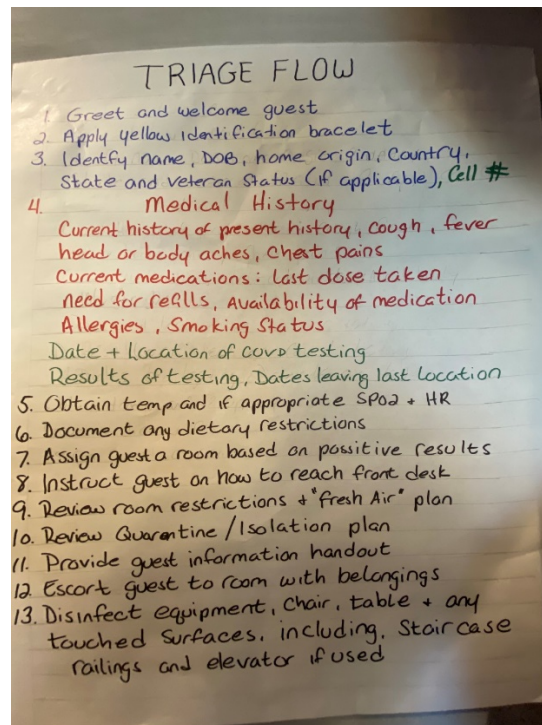 TRIAGE FLOW
1. Greet and welcome guest
2. Apply yellow Identification bracelet
3. Identfy name, DOB, home origin, Country,
State and veteran Status (if applicable), Cell #
4. Medical History
Current history of present history, cough, fever
head or body aches, Chest pains
Current medications: Last dose taken
need for refills, Availability of medication
Allergies, Smoking Status
Date + Location of COVD testing
Results of testing, Dates leaving last location
5. Obtain temp and if appropriate SPO2 + HR
6. Document any dietary restrictions
7. Assign guest a room based on possitive results
8. Instruct guest on how to reach front desk
9. Review room restrictions + "fresh Air" plan
10. Review Quarentine / Isolation plan
11. Provide guest information handout
12 Escort guest to room with belongings
13. Disinfect equipment, Chair, table + any
touched Surfaces, including, Stair case
railings and elevator if used